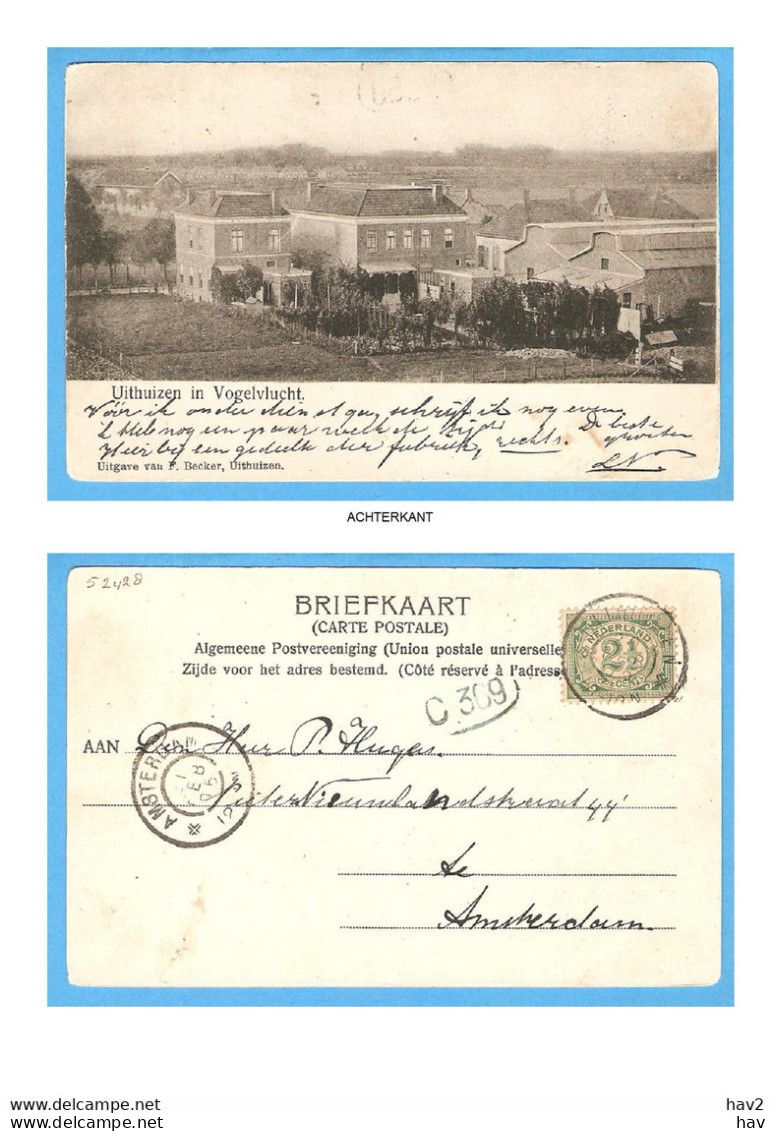 Uithuizen in Vogelvlucht.
Vóór ik onder dienst ga, schrijf ik nog even
nog een paar
Hierbij een gedeelte der fabriek, rechts. De beste
groeten
LN.
Uitgave van F. Becker, Uithuizen.
ACHTERKANT
52428
BRIEFKAART
(CARTE POSTALE)
Algemeene Postvereeniging (Union postale universelle
Zijde voor het adres bestemd. (Côté réservé à l'adress
NEDERLAND
2½
CENT
C 369
AAN Den Heer P. Hugen.
Nieuwlandstraat 44
te
Amsterdam.
AMSTERDAM
hav2
hav